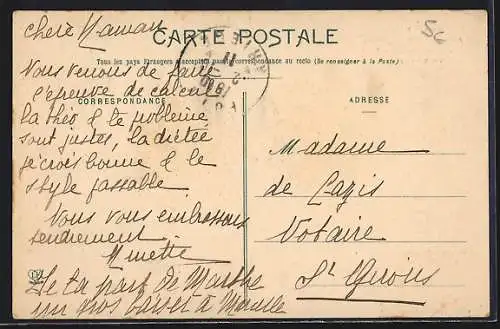 chère Maman
CARTE POSTALE
Tous les pays Etrangers n'acceptent pas la correspondance au recto (Se renseigner à la Poste)
Vous venons de faire
l'épreuve de calcul
CORRESPONDANCE
ADRESSE
la théo & le problème
sont justes, la dictée
je crois bonne & le
style passable.
Nous vous embrassons
tendrement.
Minette
Madame
de Lazis
Notaire
St Girons
de ta part de Marthe
un gros baiser à
56